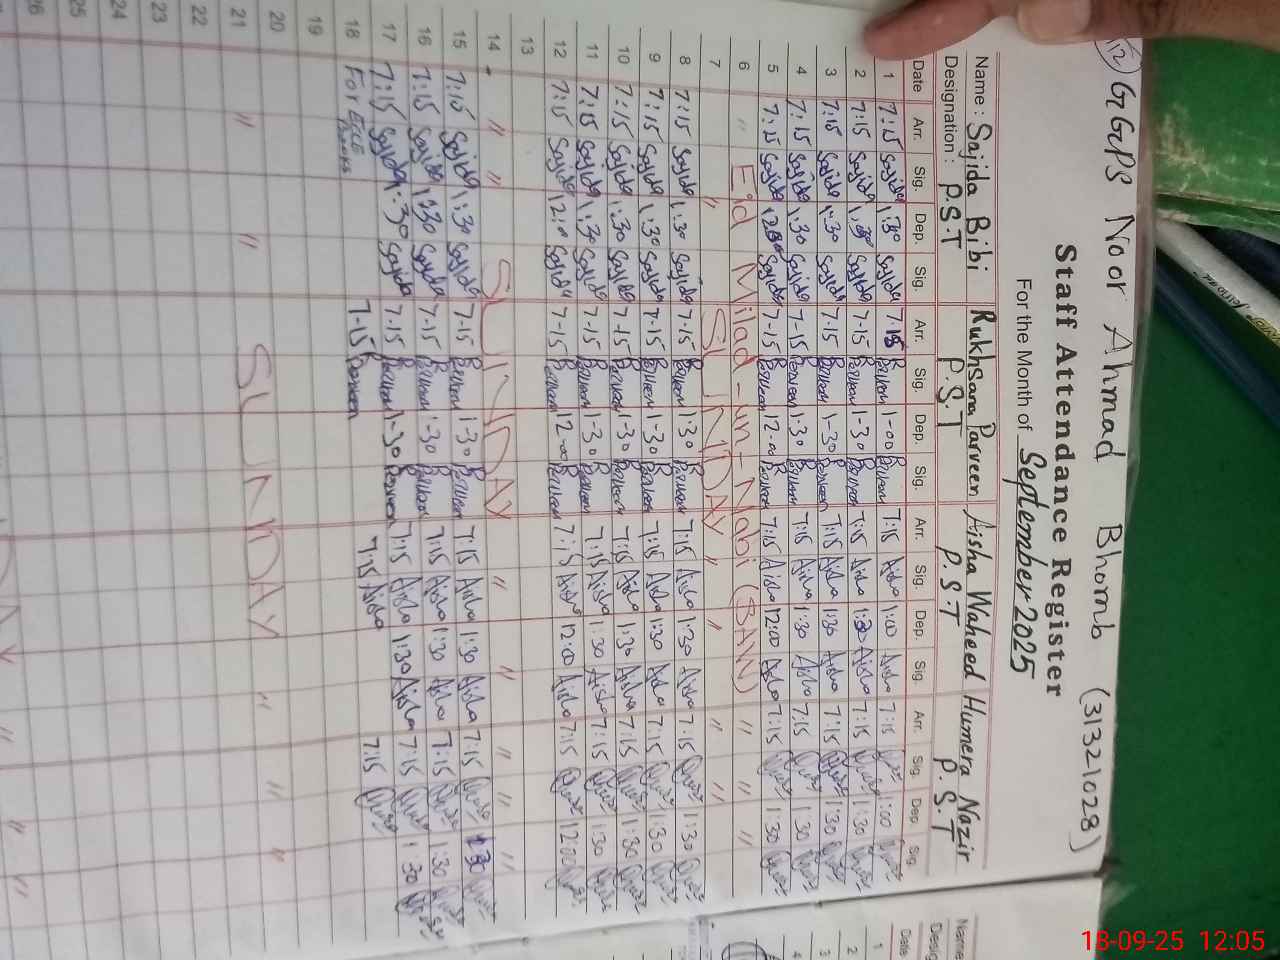 (12) GGPS Noor Ahmad Bhomb (31321028)
Staff Attendance Register
For the Month of September 2025
Name: Sajida Bibi Rukhsana Parveen Aisha Waheed Humera Nazir
Designation: P.S.T P.S.T P.S.T P.S.T
Date Arr. Sig. Dep. Sig. Arr. Sig. Dep. Sig. Arr. Sig. Dep. Sig. Arr. Sig. Dep. Sig.
1 7:15 Sajida 1:30 Sajida 7-15 R Parveen 1-00 R Parveen 7:15 Aisha 1:00 Aisha 7:15 1:00
2 7:15 Sajida 1:30 Sajida 7-15 R Parveen 1-30 R Parveen 7:15 Aisha 1:30 Aisha 7:15 1:30
3 7:15 Sajida 1:30 Sajida 7-15 R Parveen 1-30 R Parveen 7:15 Aisha 1:30 Aisha 7:15 1:30
4 7:15 Sajida 1:30 Sajida 7-15 R Parveen 1-30 R Parveen 7:15 Aisha 1:30 Aisha 7:15 1:30
5 7:15 Sajida Sajida 7-15 R Parveen 12-00 R Parveen 7:15 Aisha 12:00 Aisha 7:15 1:30
6 " Eid Milad-un-Nabi (SAW) " " "
7 " SUNDAY " " " "
8 7:15 Sajida 1:30 Sajida 7-15 R Parveen 1-30 R Parveen 7:15 Aisha 1:30 Aisha 7:15 1:30
9 7:15 Sajida 1:30 Sajida 7-15 R Parveen 1-30 R Parveen 7:15 Aisha 1:30 Aisha 7:15 1:30
10 7:15 Sajida 1:30 Sajida 7-15 R Parveen 1-30 R Parveen 7:15 Aisha 1:30 Aisha 7:15 1:30
11 7:15 Sajida 1:30 Sajida 7-15 R Parveen 1-30 R Parveen 7:15 Aisha 1:30 Aisha 7:15 1:30
12 7:15 Sajida Sajida 7-15 R Parveen 12-00 R Parveen 7:15 Aisha 12:00 Aisha 7:15 12:00
13
14 " " SUNDAY " " " "
15 7:15 Sajida 1:30 Sajida 7-15 R Parveen 1-30 R Parveen 7:15 Aisha 1:30 Aisha 7:15 1:30
16 7:15 Sajida 1:30 Sajida 7-15 R Parveen 1-30 R Parveen 7:15 Aisha 1:30 Aisha 7:15 1:30
17 7:15 Sajida 1:30 Sajida 7-15 R Parveen 1-30 R Parveen 7:15 Aisha 1:30 Aisha 7:15 1:30
18 For ECCE Books 7-15 R Parveen 7:15 Aisha 7:15
19
20
21 " " SUNDAY " " "
22
23
24
25
26
Name
Desig
Date
1
2
3
4
18-09-25 12:05